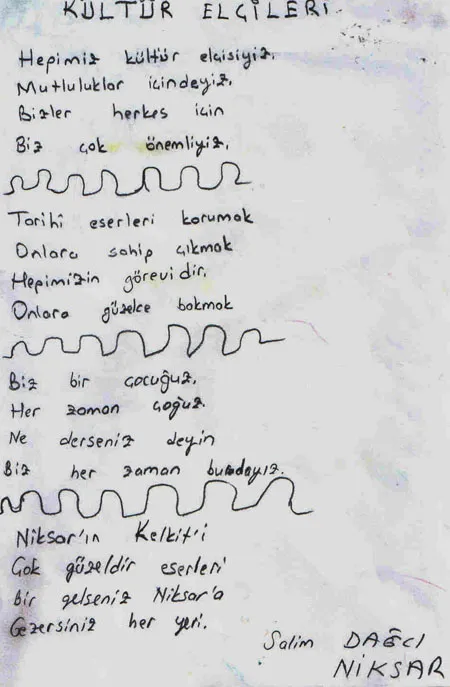 KÜLTÜR ELÇİLERİ
Hepimiz kültür elçisiyiz.
Mutluluklar içindeyiz.
Bizler herkes için
Biz çok önemliyiz.
Tarihî eserleri korumak
Onlara sahip çıkmak
Hepimizin görevidir.
Onlara güzelce bakmak
Biz bir çocuğuz.
Her zaman çoğuz.
Ne derseniz deyin
Biz her zaman burdayız.
Niksar'ın Kelkit'i
Çok güzeldir eserleri
Bir gelseniz Niksar'a
Gezersiniz her yeri.
Salim DAĞCI
NİKSAR